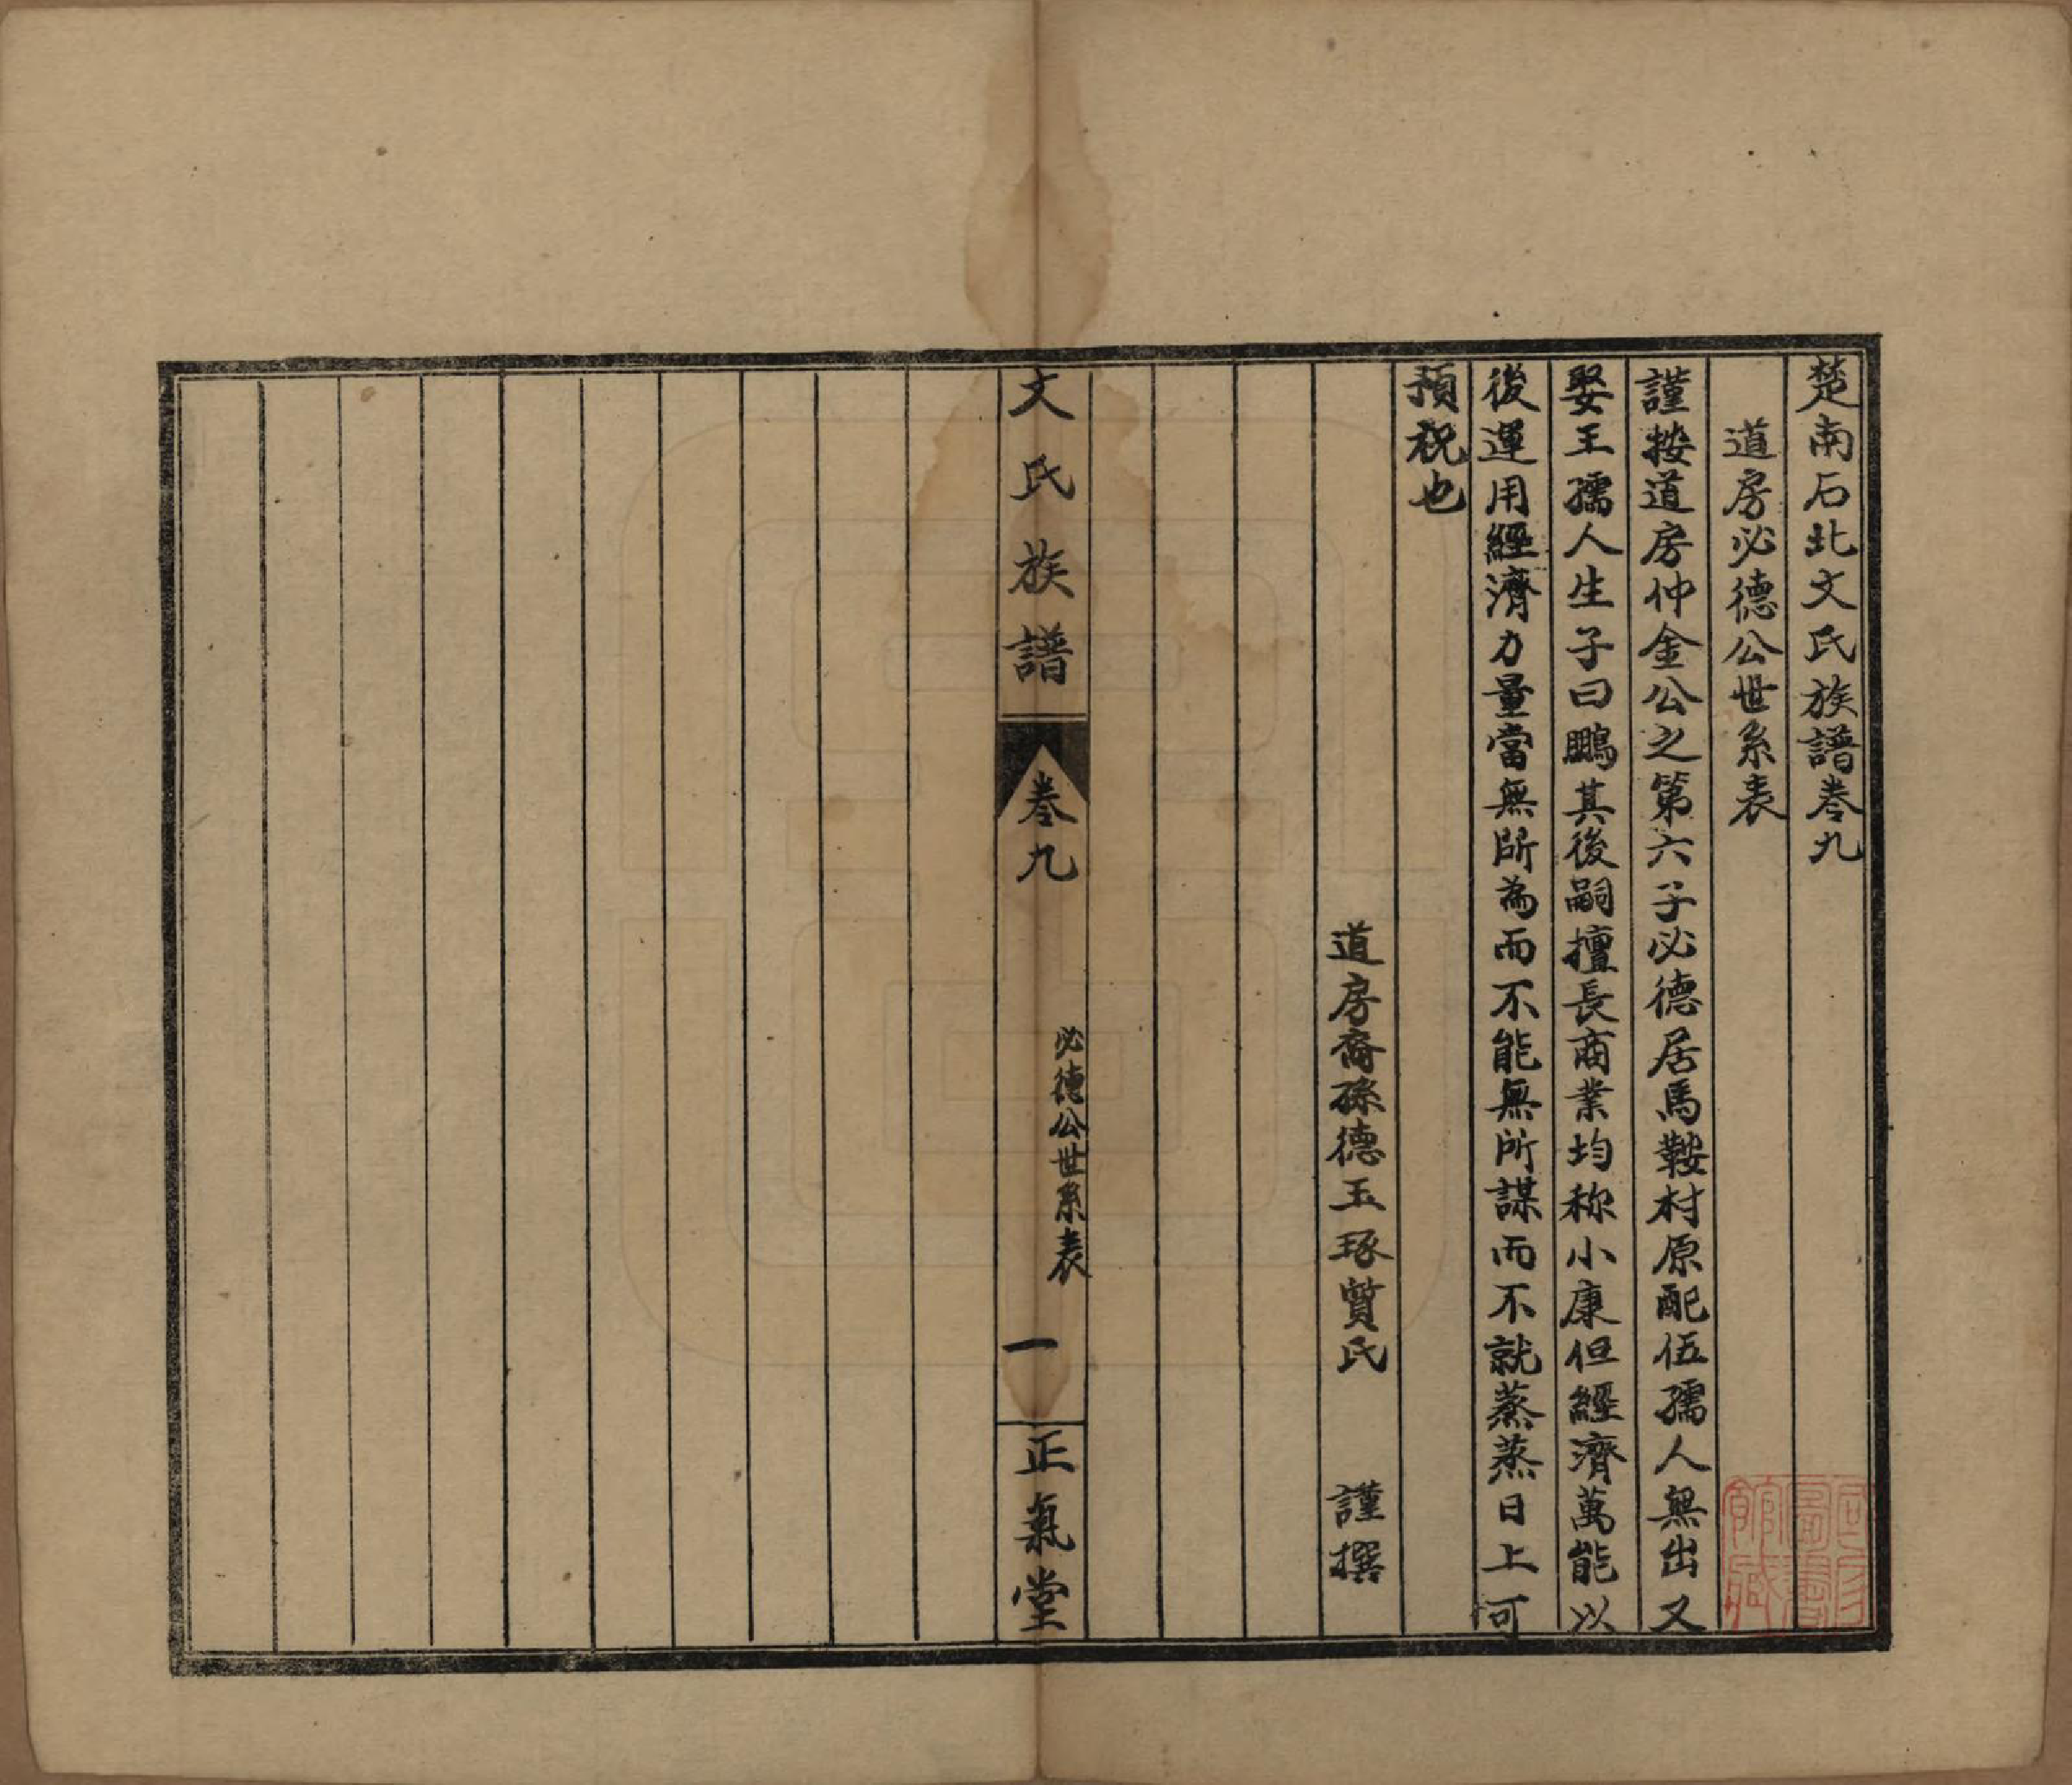 楚南石北文氏族譜卷九
道房必德公世系表
謹按道房仲金公之第六子必德居馬鞍村原配伍孺人無出又
娶王孺人生子曰鵬其後嗣擅長商業均称小康但經濟萬能以
後運用經濟力量當無所為而不能無所謀而不就蒸蒸日上可
預祝也
道房裔孫德玉琢質氏　謹撰
文氏族譜
卷九
必德公世系表
一
正氣堂
國家圖書館藏